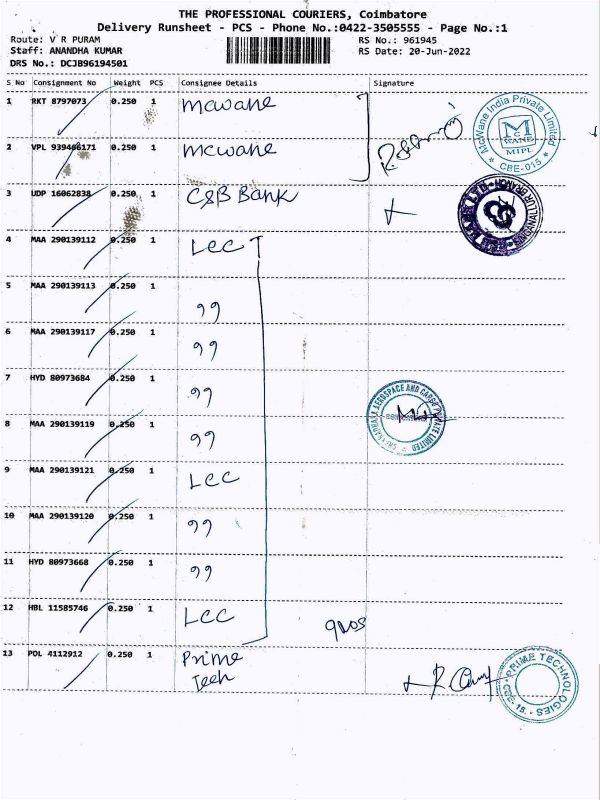 THE PROFESSIONAL COURIERS, Coimbatore
Delivery Runsheet - PCS - Phone No.:0422-3505555 - Page No.:1
Route: V R PURAM RS No.: 961945
Staff: ANANDHA KUMAR RS Date: 20-Jun-2022
DRS No.: DCJB96194501
S No Consignment No Weight PCS Consignee Details Signature
1 RKT 8797073 0.250 1 mcwane
McWane India Private Limited
M C WANE
MIPL
★ CBE-015 ★
2 VPL 939466171 0.250 1 mcwane
3 UDP 16062838 0.250 1 CSB Bank
SINGANALLUR BRANCH
4 MAA 290139112 0.250 1 LCC
5 MAA 290139113 0.250 1 ,,
6 MAA 290139117 0.250 1 ,,
7 HYD 80973684 0.250 1 ,,
AEROSPACE AND CARGO PRIVATE LIMITED
8 MAA 290139119 0.250 1 ,,
9 MAA 290139121 0.250 1 LCC
10 MAA 290139120 0.250 1 ,,
11 HYD 80973668 0.250 1 ,,
12 HBL 11585746 0.250 1 LCC
9 NOS
13 PDL 4112912 0.250 1 Prime
Tech
PRIME TECHNOLOGIES
CBE-15